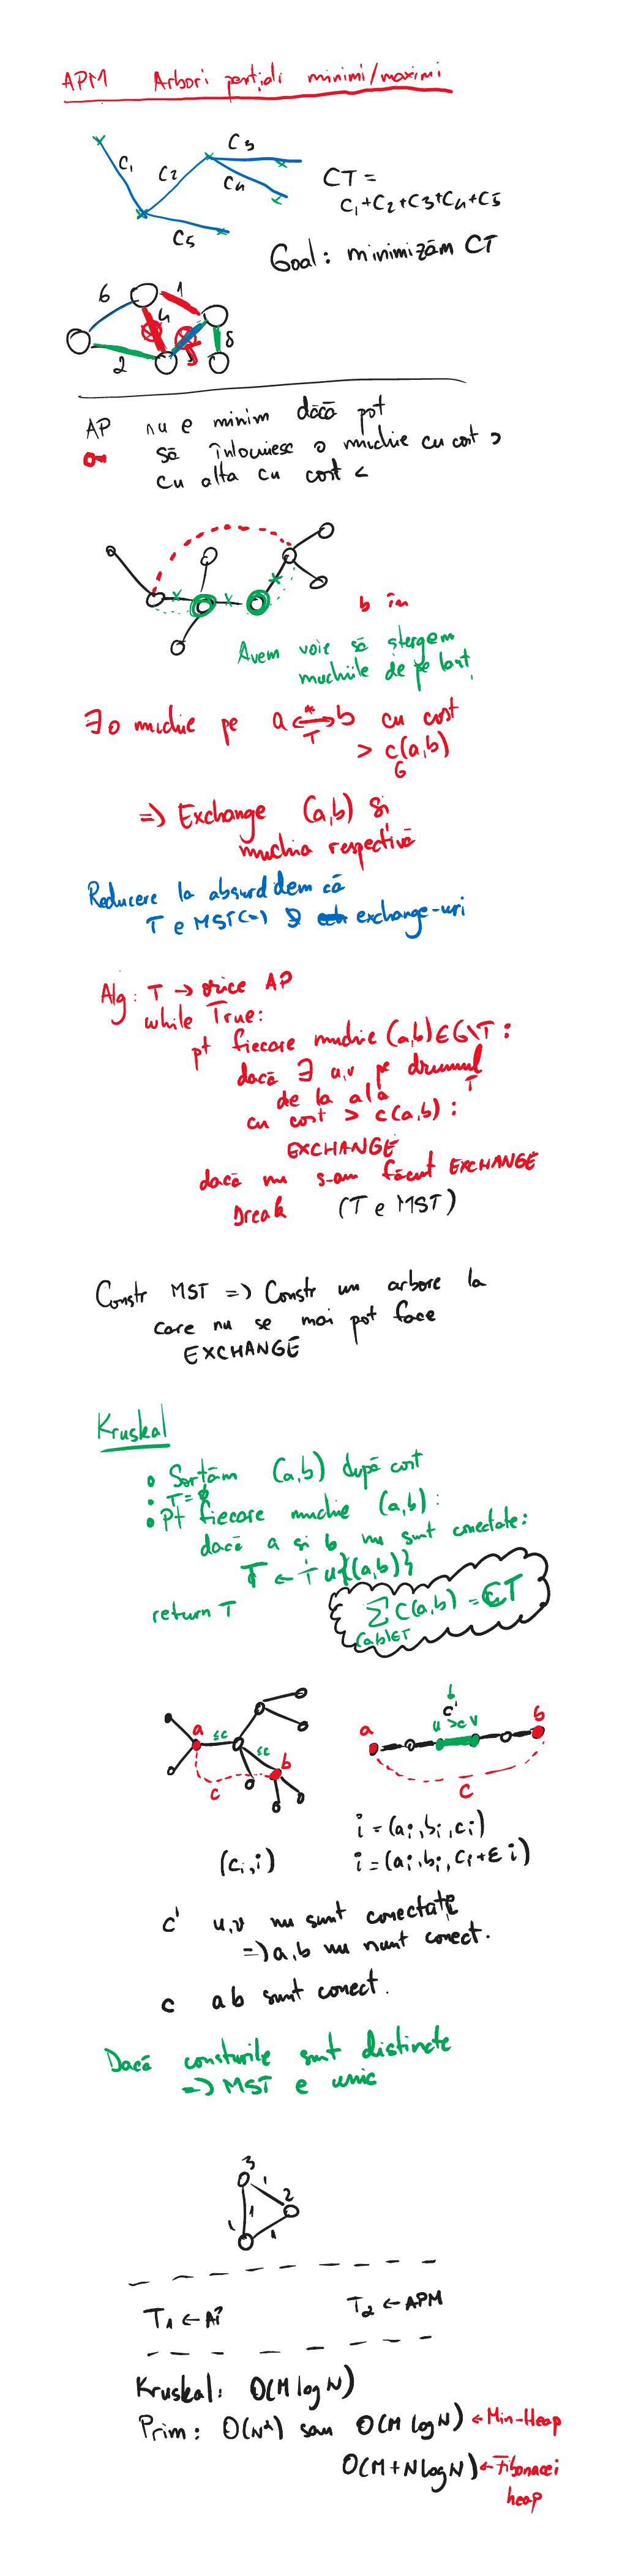 APM Arbori parțiali minimi/maximi
C1
C2
C3
C4
C5
CT =
C1+C2+C3+C4+C5
Goal: minimizăm CT
6
1
4
8
2
AP nu e minim dacă pot
să înlocuiesc o muchie cu cost >
cu alta cu cost <
b în
Avem voie să ștergem
muchiile de pe lanț
∃ o muchie pe a ↔ b cu cost
* T
> c(a,b)
G
=> Exchange (a,b) și
muchia respectivă
Reducere la absurd dem că
T e MST(=) exchange-uri
Alg: T → orice AP
while True:
pt fiecare muchie (a,b)∈G\T:
dacă ∃ u,v pe drumul
T
de la a la
cu cost > c(a,b):
EXCHANGE
dacă nu s-au făcut EXCHANGE
break (T e MST)
Constr MST => Constr un arbore la
care nu se mai pot face
EXCHANGE
Kruskal
• Sortăm (a,b) după cost
• T=∅
• Pt fiecare muchie (a,b):
dacă a și b nu sunt conectate:
T ← T ∪ {(a,b)}
return T
∑ C(a,b) = CT
(a,b)∈T
a
≤c
≤c
b
c
b
c'
a
u >c v
b
c
i = (ai, bi, ci)
(ci, i)
i = (ai, bi, ci+ε i)
c' u,v nu sunt conectate
=> a,b nu sunt conect.
c a b sunt conect.
Dacă costurile sunt distincte
=> MST e unic
3
1
2
1
1
1
T1 ←
T2 ← APM
Kruskal: O(M log N)
Prim: O(N²) sau O(M log N) ← Min-Heap
O(M+N log N) ← Fibonacci
heap